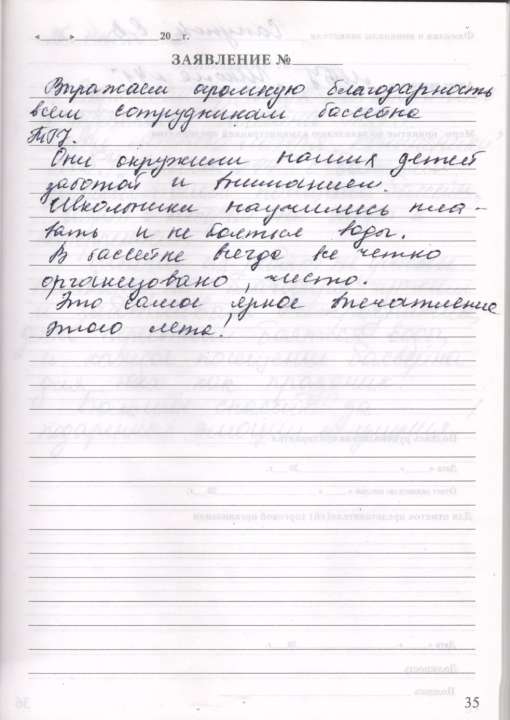 « » 20 г.
ЗАЯВЛЕНИЕ №
Выражаем огромную благодарность
всем сотрудникам бассейна
ТПУ.
Они окружили наших детей
заботой и вниманием.
Школьники научились пла-
вать и не боятся воды.
В бассейне всегда все четко
организовано, чисто.
Это самое яркое впечатление
этого лета!
35